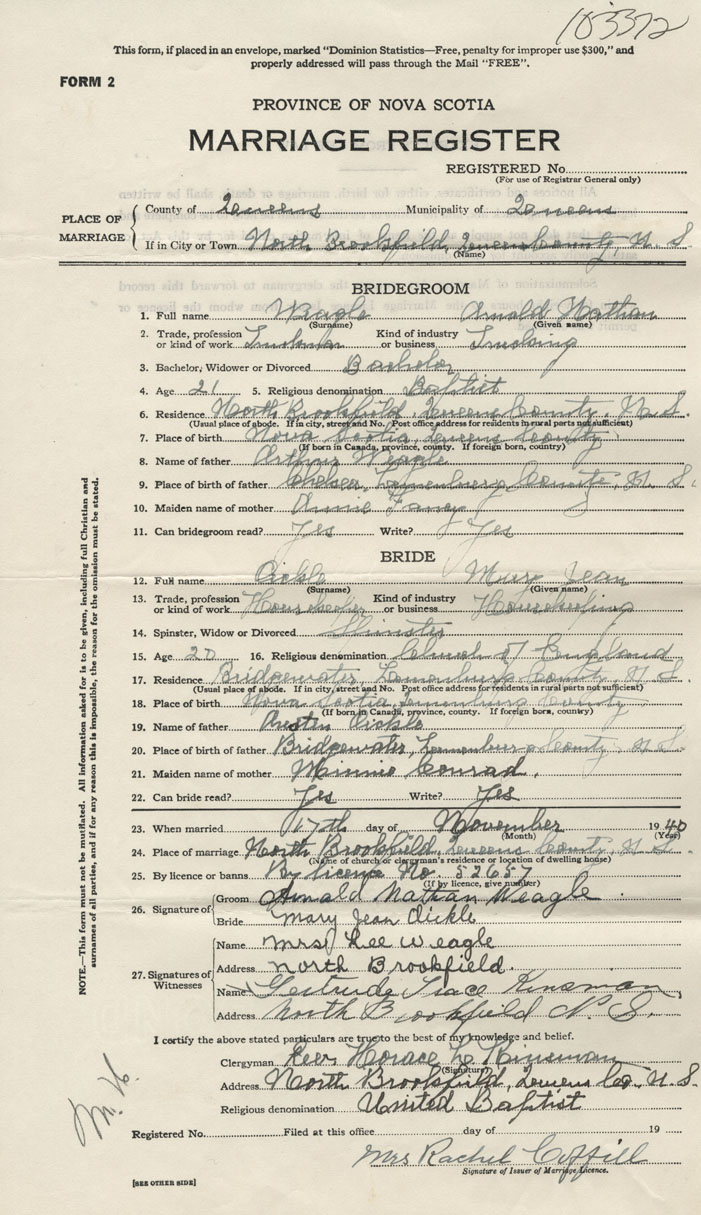 103372
This form, if placed in an envelope, marked "Dominion Statistics—Free, penalty for improper use $300," and
properly addressed will pass through the Mail "FREE".
FORM 2
PROVINCE OF NOVA SCOTIA
MARRIAGE REGISTER
REGISTERED No.
(For use of Registrar General only)
PLACE OF MARRIAGE
County of Queens Municipality of Queens
If in City or Town North Brookfield, Queens County, N. S.
(Name)
BRIDEGROOM
1. Full name Weagle Arnold Nathan
(Surname) (Given name)
2. Trade, profession or kind of work Truckman Kind of industry or business Trucking
3. Bachelor, Widower or Divorced Bachelor
4. Age 21 5. Religious denomination Baptist
6. Residence North Brookfield, Queens County, N. S.
(Usual place of abode. If in city, street and No. Post office address for residents in rural parts not sufficient)
7. Place of birth Nova Scotia, Queens County
(If born in Canada, province, county. If foreign born, country)
8. Name of father Arthur Weagle
9. Place of birth of father Chelsea, Lunenburg County, N. S.
10. Maiden name of mother Annie
11. Can bridegroom read? Yes Write? Yes
BRIDE
12. Full name Aickle Mary Jean
(Surname) (Given name)
13. Trade, profession or kind of work Housekeeper Kind of industry or business Housekeeping
14. Spinster, Widow or Divorced Spinster
15. Age 20 16. Religious denomination Church of England
17. Residence Bridgewater, Lunenburg County, N. S.
(Usual place of abode. If in city, street and No. Post office address for residents in rural parts not sufficient)
18. Place of birth Nova Scotia, Lunenburg County
(If born in Canada, province, county. If foreign born, country)
19. Name of father Austin Aickle
20. Place of birth of father Bridgewater, Lunenburg County, N. S.
21. Maiden name of mother Minnie Conrad.
22. Can bride read? Yes Write? Yes
23. When married 17th day of November 1940
(Month) (Year)
24. Place of marriage North Brookfield, Queens County, N. S.
(Name of church or clergyman's residence or location of dwelling house)
25. By licence or banns By licence No. 52657
(If by licence, give number)
26. Signature of
Groom Arnold Nathan Weagle
Bride Mary Jean Aickle
27. Signatures of Witnesses
Name Mrs Lee Weagle
Address North Brookfield.
Name Gertrude Kinsman
Address North Brookfield N. S.
I certify the above stated particulars are true to the best of my knowledge and belief.
Clergyman Horace L. Kinsman
(Signature)
Address North Brookfield, Queens Co. N. S.
Religious denomination United Baptist
Registered No. Filed at this office day of 19
Mrs Rachel Coffill
Signature of Issuer of Marriage Licence.
[SEE OTHER SIDE]
NOTE.—This form must not be mutilated. All information asked for is to be given, including full Christian and
surnames of all parties, and if for any reason this is impossible, the reason for the omission must be stated.